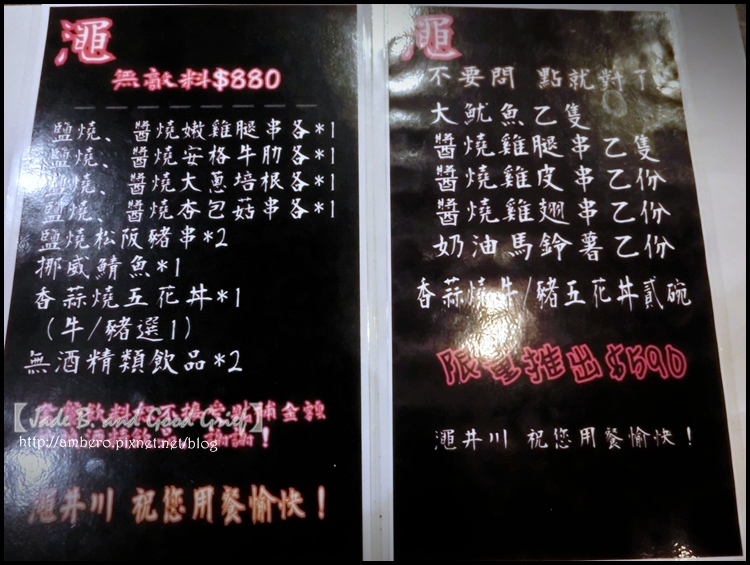 澠
無敵料$880
鹽燒、醬燒嫩雞腿串各*1
鹽燒、醬燒安格牛肋各*1
鹽燒、醬燒大蔥培根各*1
鹽燒、醬燒杏包菇串各*1
鹽燒松阪豬串*2
挪威鯖魚*1
香蒜燒五花丼*1
(牛/豬選1)
無酒精類飲品*2
【Jade B. and Good Grief】
http://ambero.pixnet.net/blog
澠井川 祝您用餐愉快!
澠
不要問 點就對了
大魷魚乙隻
醬燒雞腿串乙隻
醬燒雞皮串乙份
醬燒雞翅串乙份
奶油馬鈴薯乙份
香蒜燒牛/豬五花丼貳碗
限量推出$590
澠井川 祝您用餐愉快!